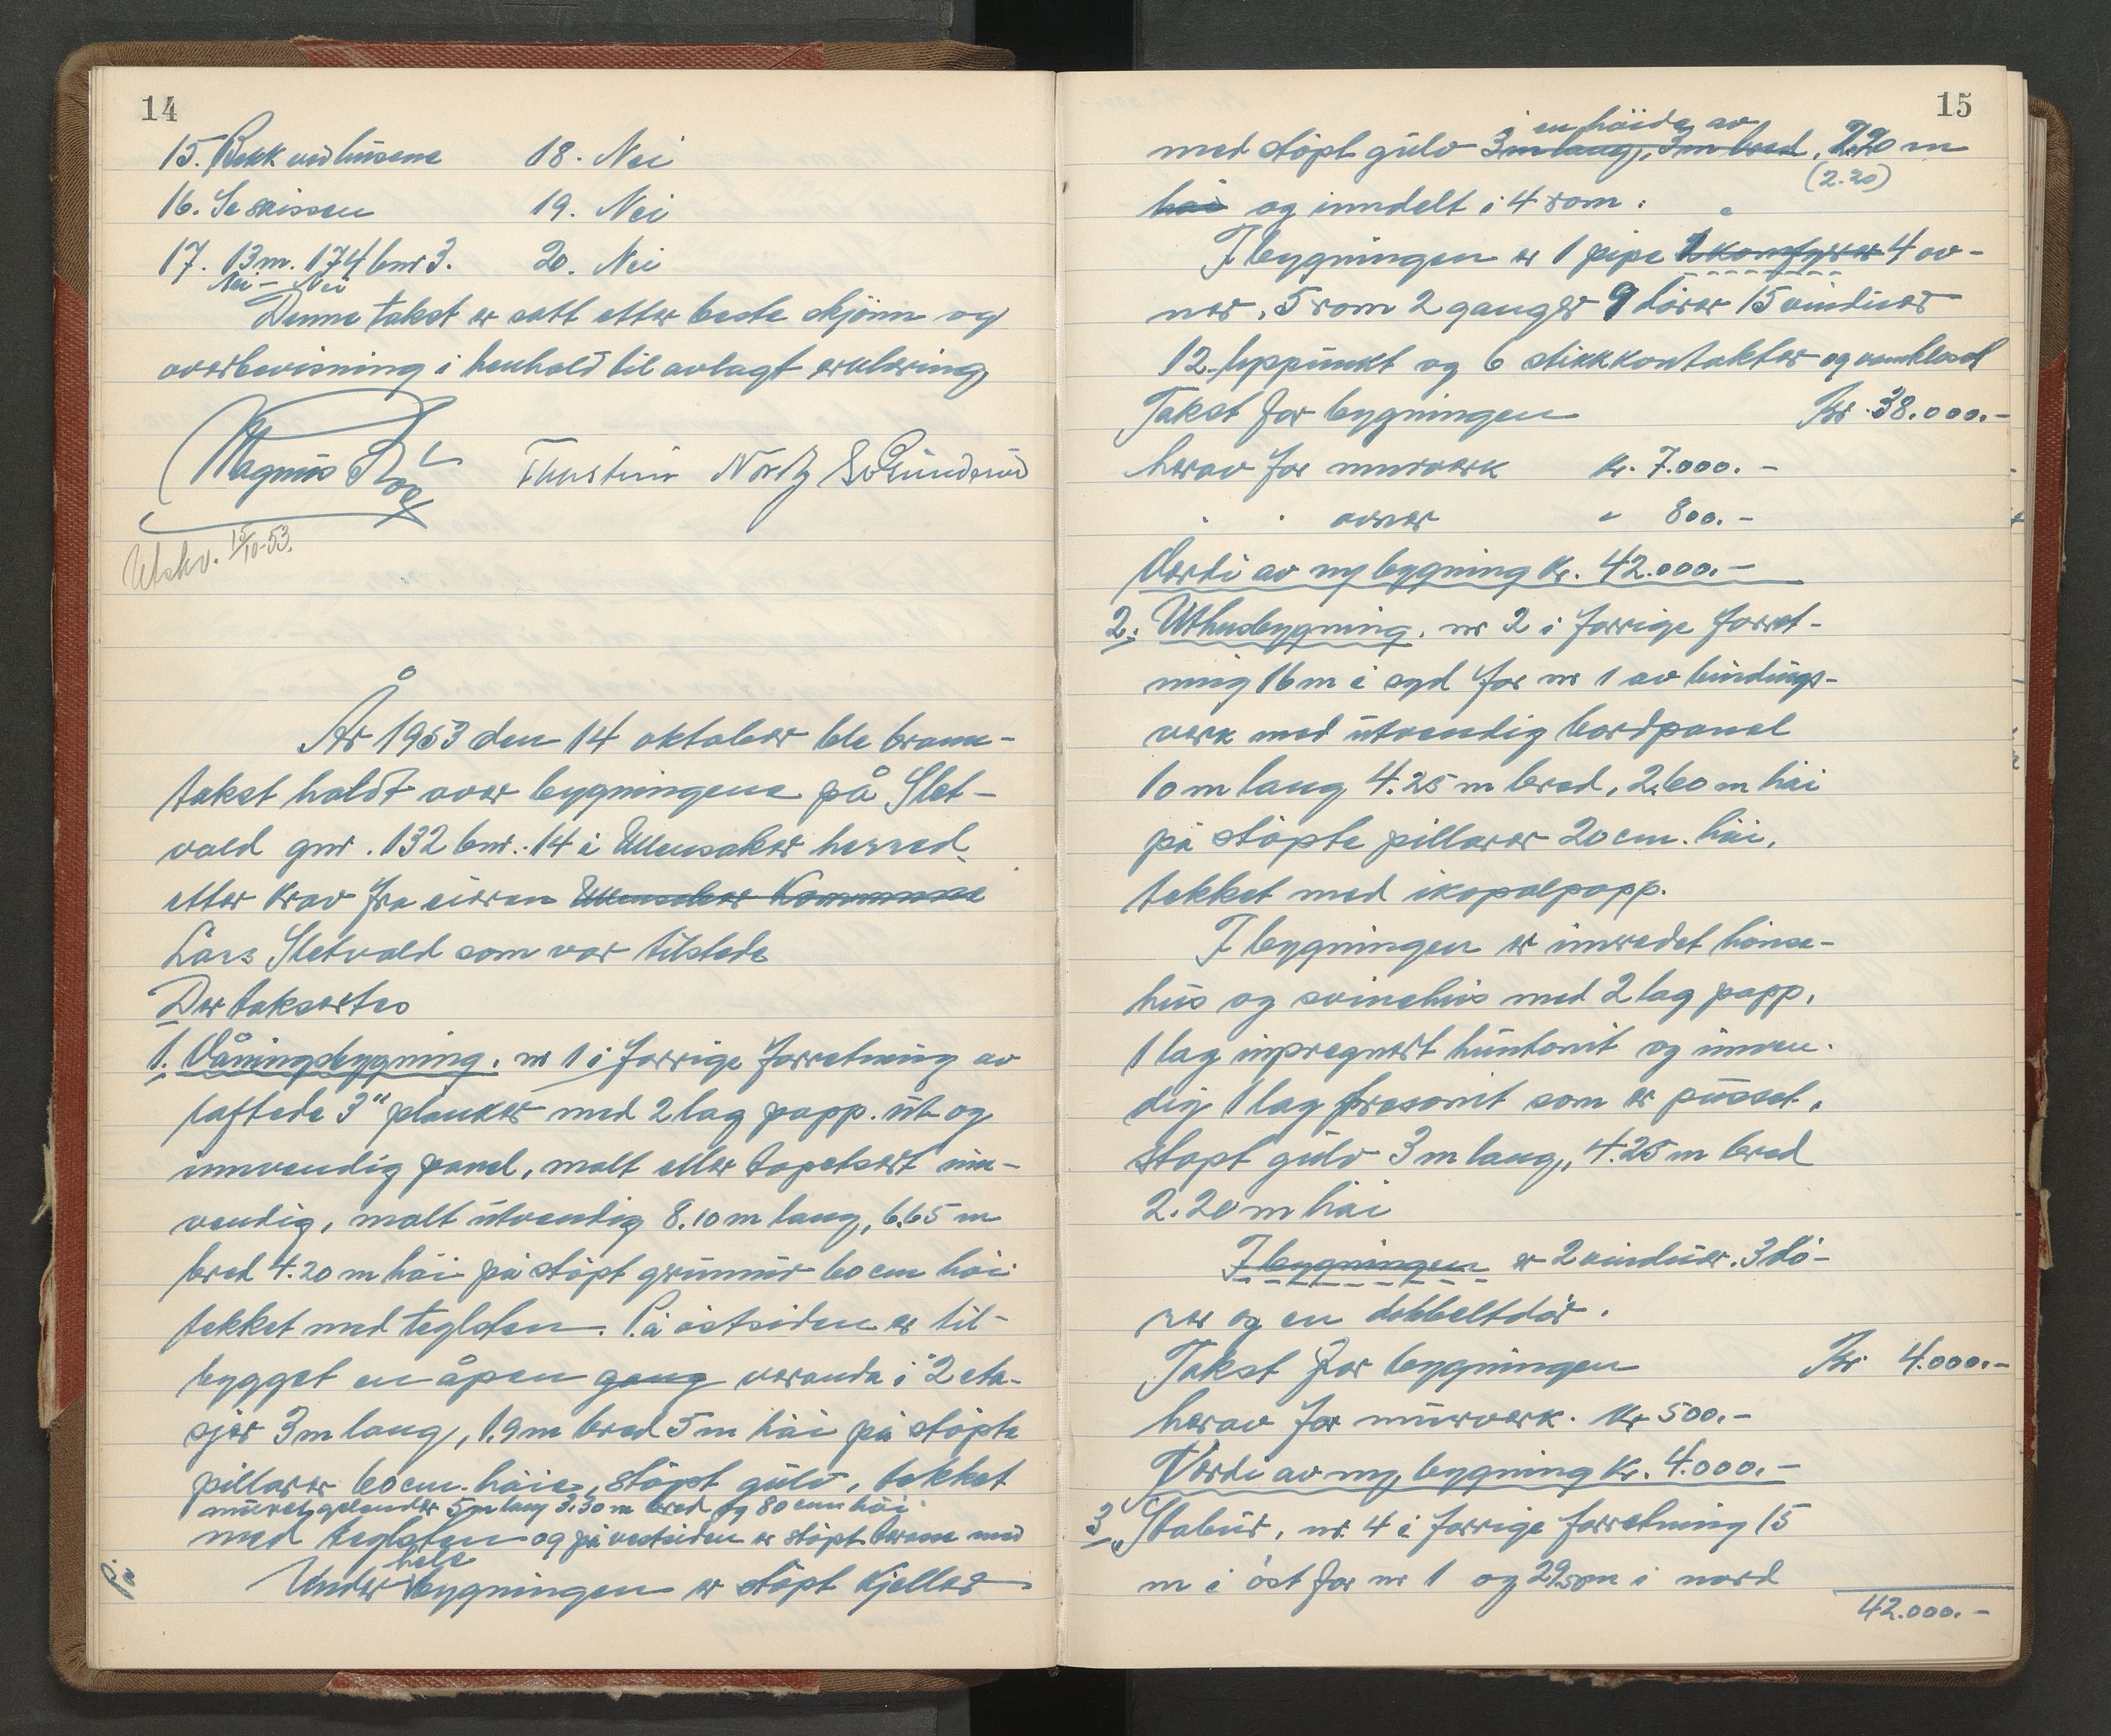 14
15. Bekk ved husene 18. Nei
16. Se skissen 19. Nei
17. 13m. 174/bnr 3. 20. Nei
Nei - Nei
Denne takst er satt etter beste skjönn og
overbevisning i henhold til avlagt erklæring
Magnus
Utskv. 15/10-53.
År 1953 den 14 oktober ble brann-
takst holdt over bygningene på Slet-
vold gnr. 132 bnr.: 14 i Ullensaker herred
etter krav fra eieren Ullensaker Kommune
Lars Sletvold som var tilstede
Der taksertes
1. Våningsbygning. nr 1 i forrige forretning av
laftede 3" planker med 2 lag papp. ut og
innvendig panel, malt eller tapetsert inn-
vendig, malt utvendig 8.10 m lang, 6.65 m
bred 4.20 m höi på stöpt grunnur 60 cm höi
tekket med teglsten. På östsiden er til-
bygget en åpen gang veranda i 2 eta-
sjer 3 m lang, 1.9 m bred 5 m höi på stöpte
pillarer 60 cm. höie, stöpt gulv, tekket
muret gelender 5 m lang 3.30 m bred og 80 cm höi
med teglsten og på vestsiden er stöpt terasse med
Under hele bygningen er stöpt kjeller
På
15
i en höide av
med stöpt gulv 3 m lang, 3 m bred, 2.20 m
(2.20)
höi og inndelt i 4 rom.
I bygningen er 1 pipe 2 komfyrer 4 ov-
ner, 5 rom 2 ganger 9 dörer 15 vinduer
12 lyspunkt og 6 stikkkontakter og vannklosett
Takst for bygningen Kr. 38.000.-
herav for murverk kr. 7.000.-
" " ovner " 800.-
Verdi av ny bygning kr. 42.000.-
2. Uthusbygning. nr 2 i forrige forret-
ning 16 m i syd for nr 1 av bindings-
verk med utvendig bordpanel
10 m lang 4.25 m bred, 2.60 m höi
på stöpte pillarer 20 cm. höi,
tekket med ikopalpapp.
I bygningen er innredet hönse-
hus og svinehus med 2 lag papp,
1 lag inpregnert huntonit og innven-
dig 1 lag fresonit som er pusset,
stöpt gulv 3 m lang, 4.25 m bred
2.20 m höi
I bygningen er 2 vinduer. 3 dö-
rer og en dobbeltdör.
Takst for bygningen Kr 4.000.-
herav for murverk. Kr 500.-
Verdi av ny bygning Kr. 4.000.-
3. Stabur, nr. 4 i forrige forretning 15
m i öst for nr 1 og 29.50m i nord
42.000.-